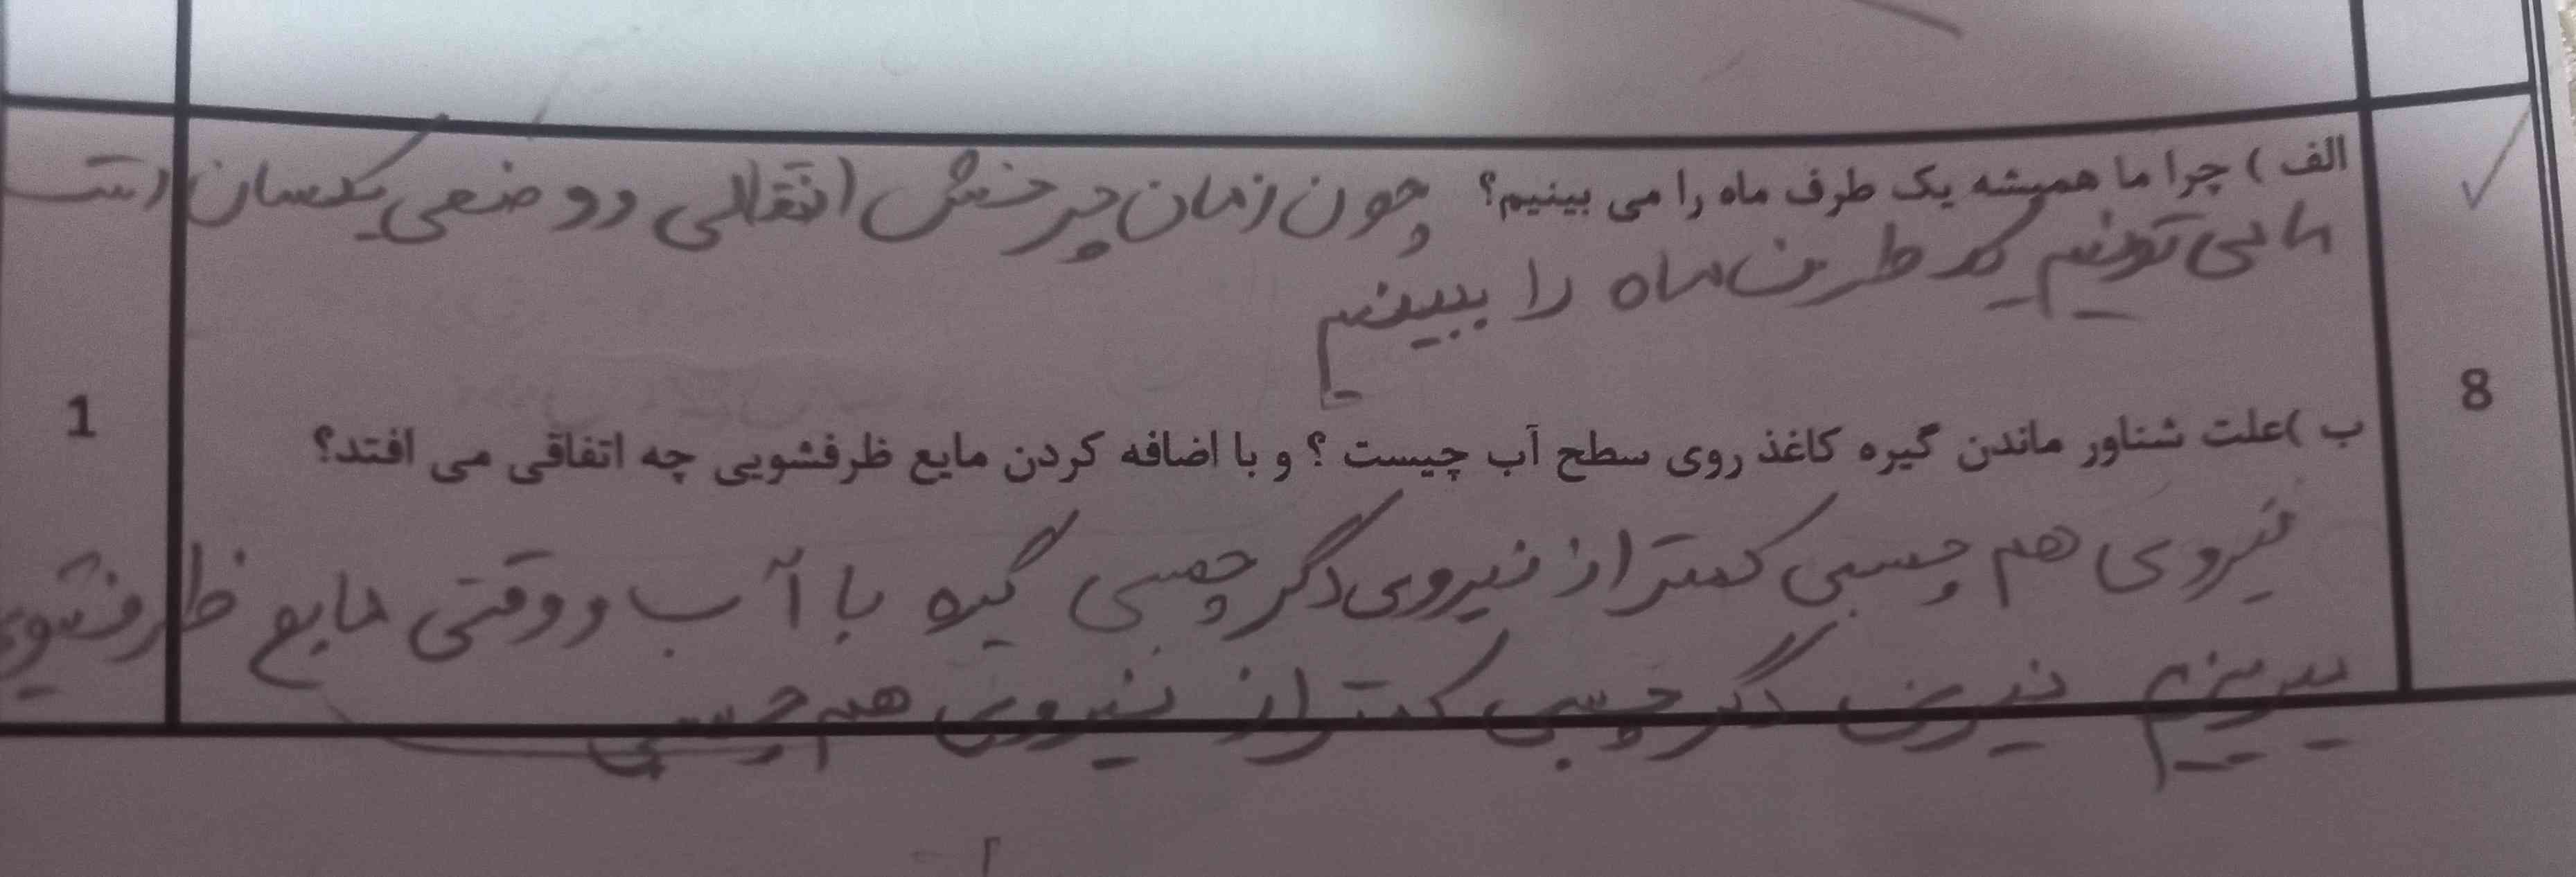 الف ) چرا ما همیشه یک طرف ماه را می بینیم؟ چون زمان چرخش انتقالی و وضعی یکسان است
ما می تونیم یک طرف ماه را ببینیم
8
1
ب )علت شناور ماندن گیره کاغذ روی سطح آب چیست ؟ و با اضافه کردن مایع ظرفشویی چه اتفاقی می افتد؟
نیروی هم چسبی کمتر از نیروی دگر چسبی گیره با آب و وقتی مایع ظرفشویی
بریزیم نیروی دگر چسبی کمتر از نیروی هم چسبی